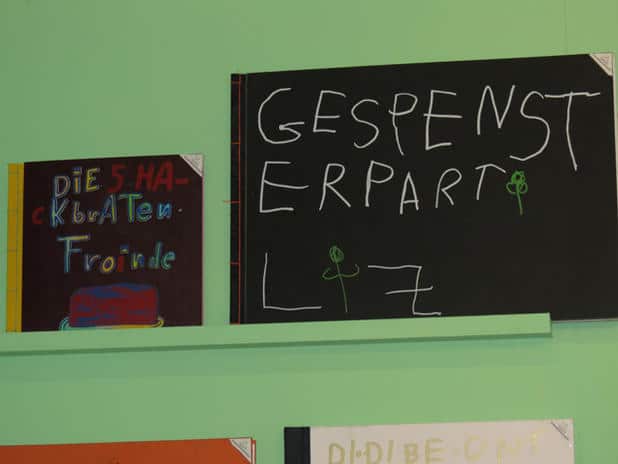 DiE 5 HA-
cKbrATen.
Froinde
GESPENST
ERPARTi
LiZ
DI·DIBE·ONT